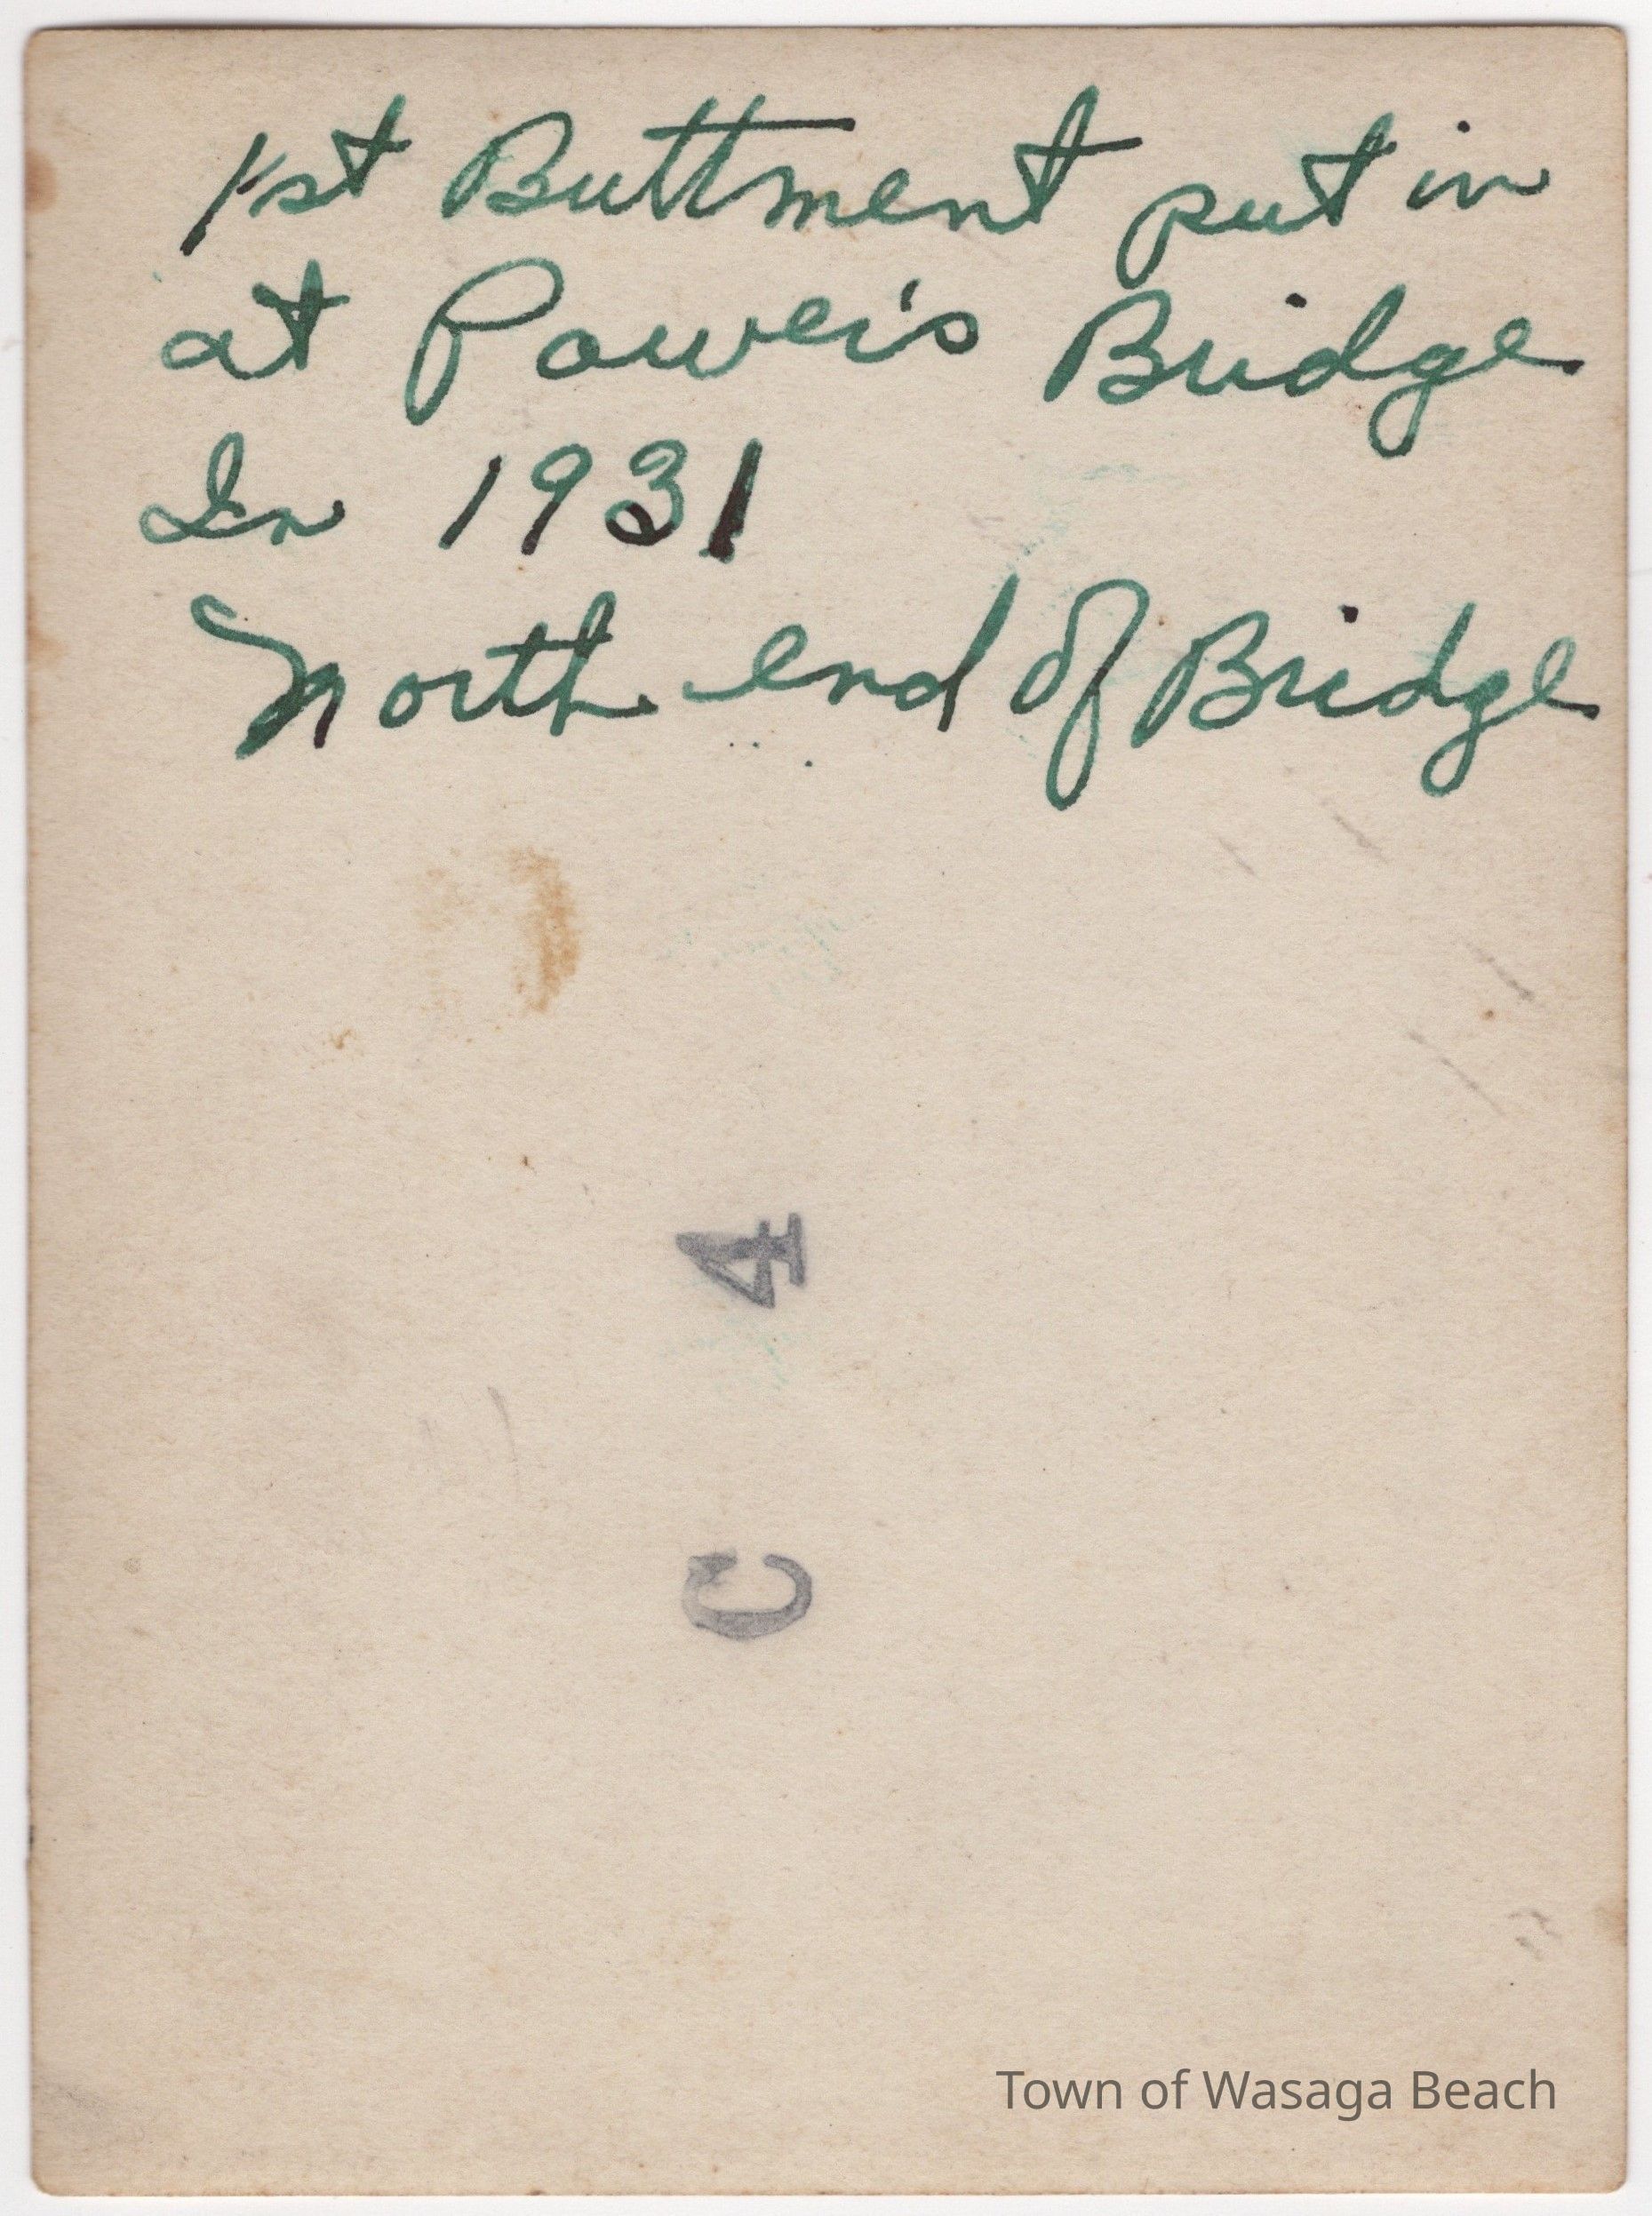 1st Buttment put in
at Power's Bridge
In 1931
North end of Bridge
4
C
Town of Wasaga Beach